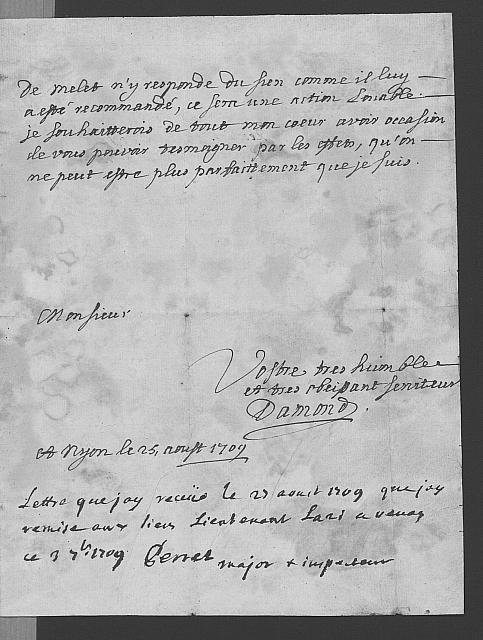 De melet n'y responde du sien comme il luy
a esté recommandé, ce sera une action Louable.
je souhaitterois de tout mon coeur avoir occasion
de vous pouvoir tesmoigner par les effets, qu'on
ne peut estre plus parfaittement que je suis.
Monsieur
Vostre tres humble
et tres obeissant serviteur
Damond.
A Nyon le 25, aoust 1709
Lettre que jay receüe le 27 aoust 1709 que jay
remise aux sieur Lieutenant
ce 3 7bre 1709 Perret major & inspecteur